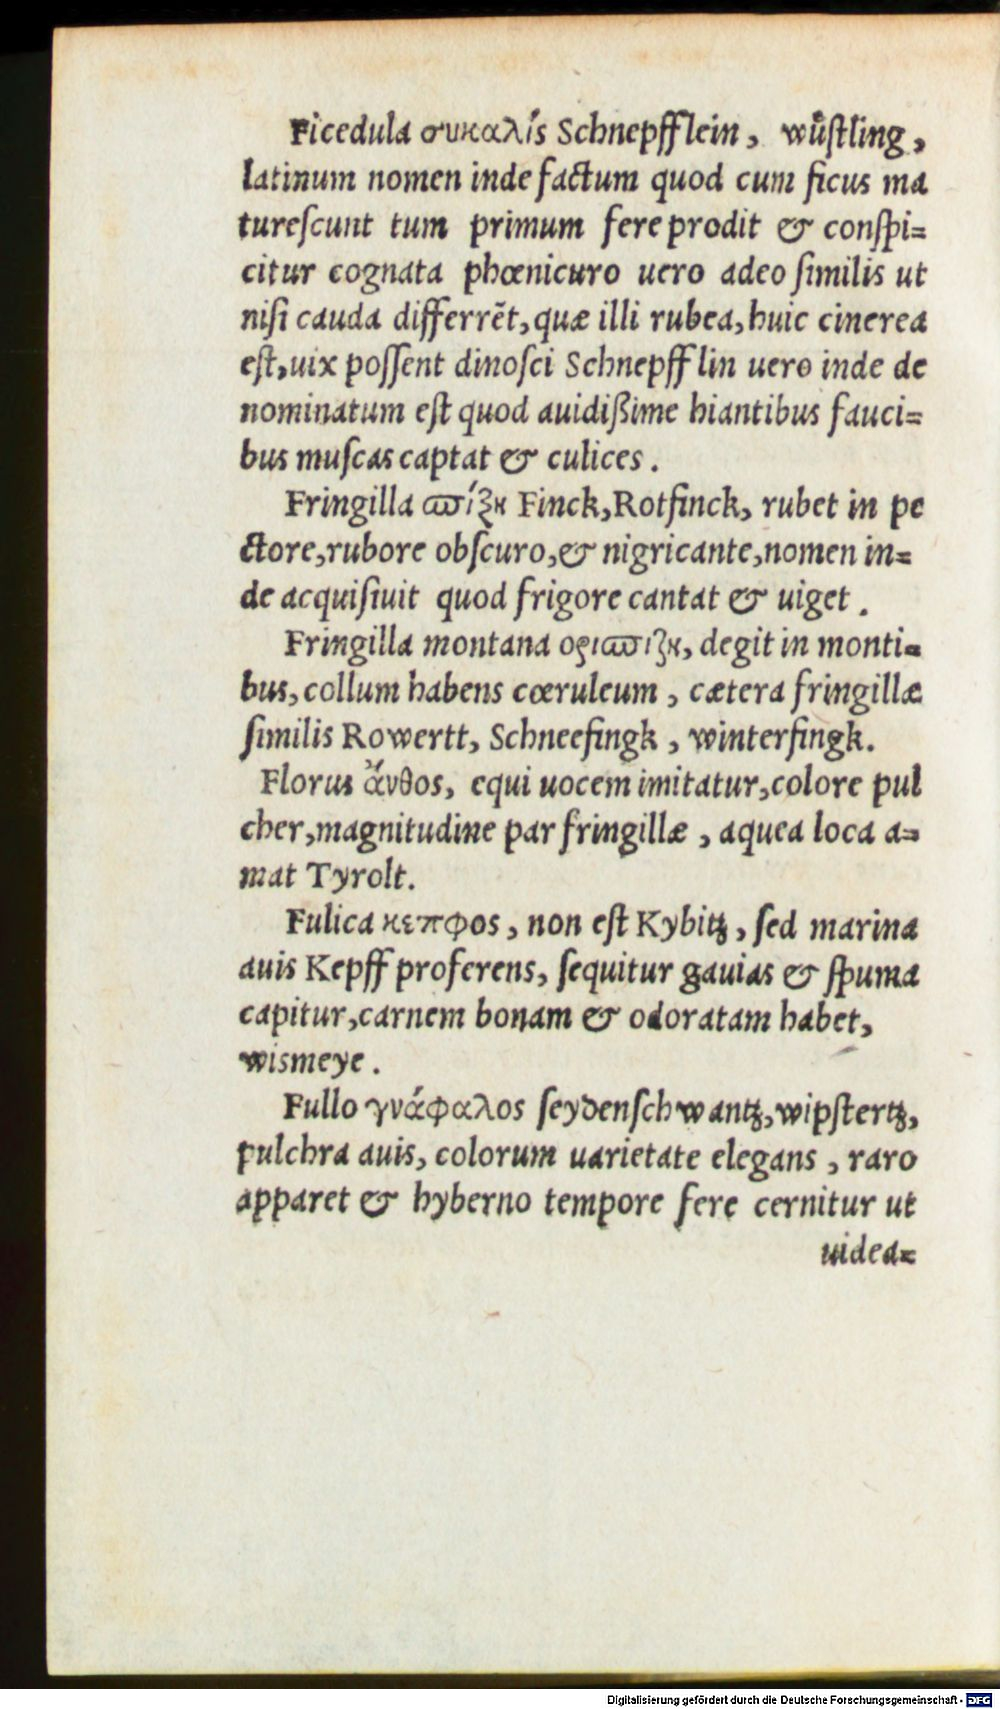 Ficedula συκαλίς Schnepfflein, wůſtling,
latinum nomen inde factum quod cum ficus ma
tureſcunt tum primum fere prodit & conſpi=
citur cognata phœnicuro uero adeo ſimilis ut
niſi cauda differrẽt, quæ illi rubea, huic cinerea
eſt, uix poſſent dinoſci Schnepfflin uero inde de
nominatum eſt quod auidißime hiantibus fauci=
bus muſcas captat & culices.
Fringilla ϖίζη Finck, Rotfinck, rubet in pe
ctore, rubore obſcuro, & nigricante, nomen in=
de acquiſiuit quod frigore cantat & uiget.
Fringilla montana οριϖιζη, degit in monti=
bus, collum habens cœruleum, cætera fringillæ
ſimilis Rowertt, Schneefingk, winterfingk.
Florus ἄνθος, equi uocem imitatur, colore pul
cher, magnitudine par fringillæ, aquea loca a=
mat Tyrolt.
Fulica κεπφος, non eſt Kybitʒ, ſed marina
auis Kepff proferens, ſequitur gauias & ſpuma
capitur, carnem bonam & odoratam habet,
wismeye.
Fullo γνάφαλος ſeydenſchwantʒ, wipſtertʒ,
pulchra auis, colorum uarietate elegans, raro
apparet & hyberno tempore fere cernitur ut
uidea=
Digitalisierung gefördert durch die Deutsche Forschungsgemeinschaft - DFG